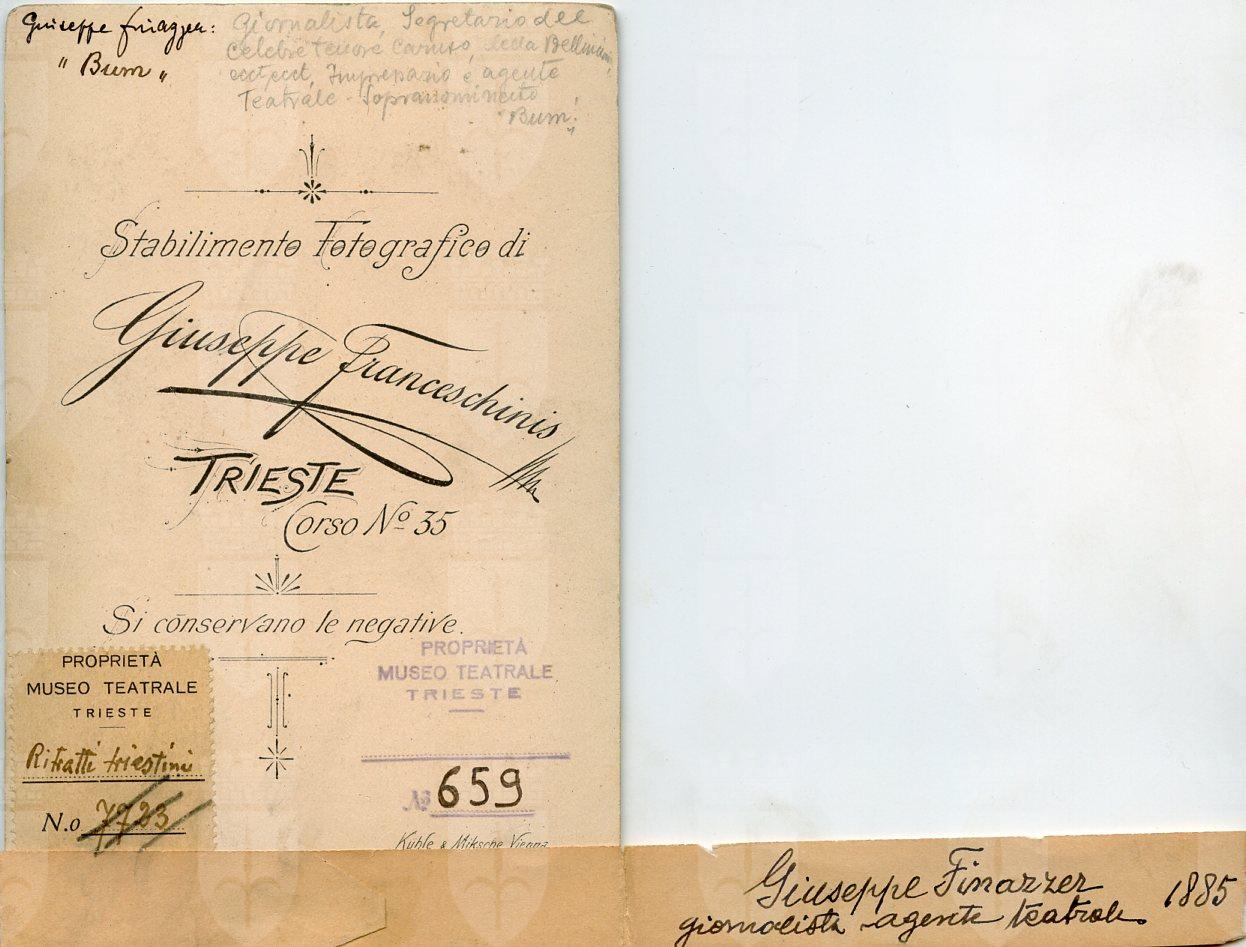 Giuseppe Finazzer:
" Bum "
Giornalista, Segretario del
celebre tenore Caruso, della Bellincioni
ecct, ecct, Impresario e agente
Teatrale - Soprannominato
"Bum"
Stabilimento Fotografico di
Giuseppe Franceschinis
TRIESTE
Corso Nº 35
Si conservano le negative.
PROPRIETÀ
MUSEO TEATRALE
TRIESTE
Ritratti triestini
N.o 7723
PROPRIETÀ
MUSEO TEATRALE
TRIESTE
Nº 659
Kuhle & Miksche Vienna
Giuseppe Finazzer 1885
giornalista - agente teatrale